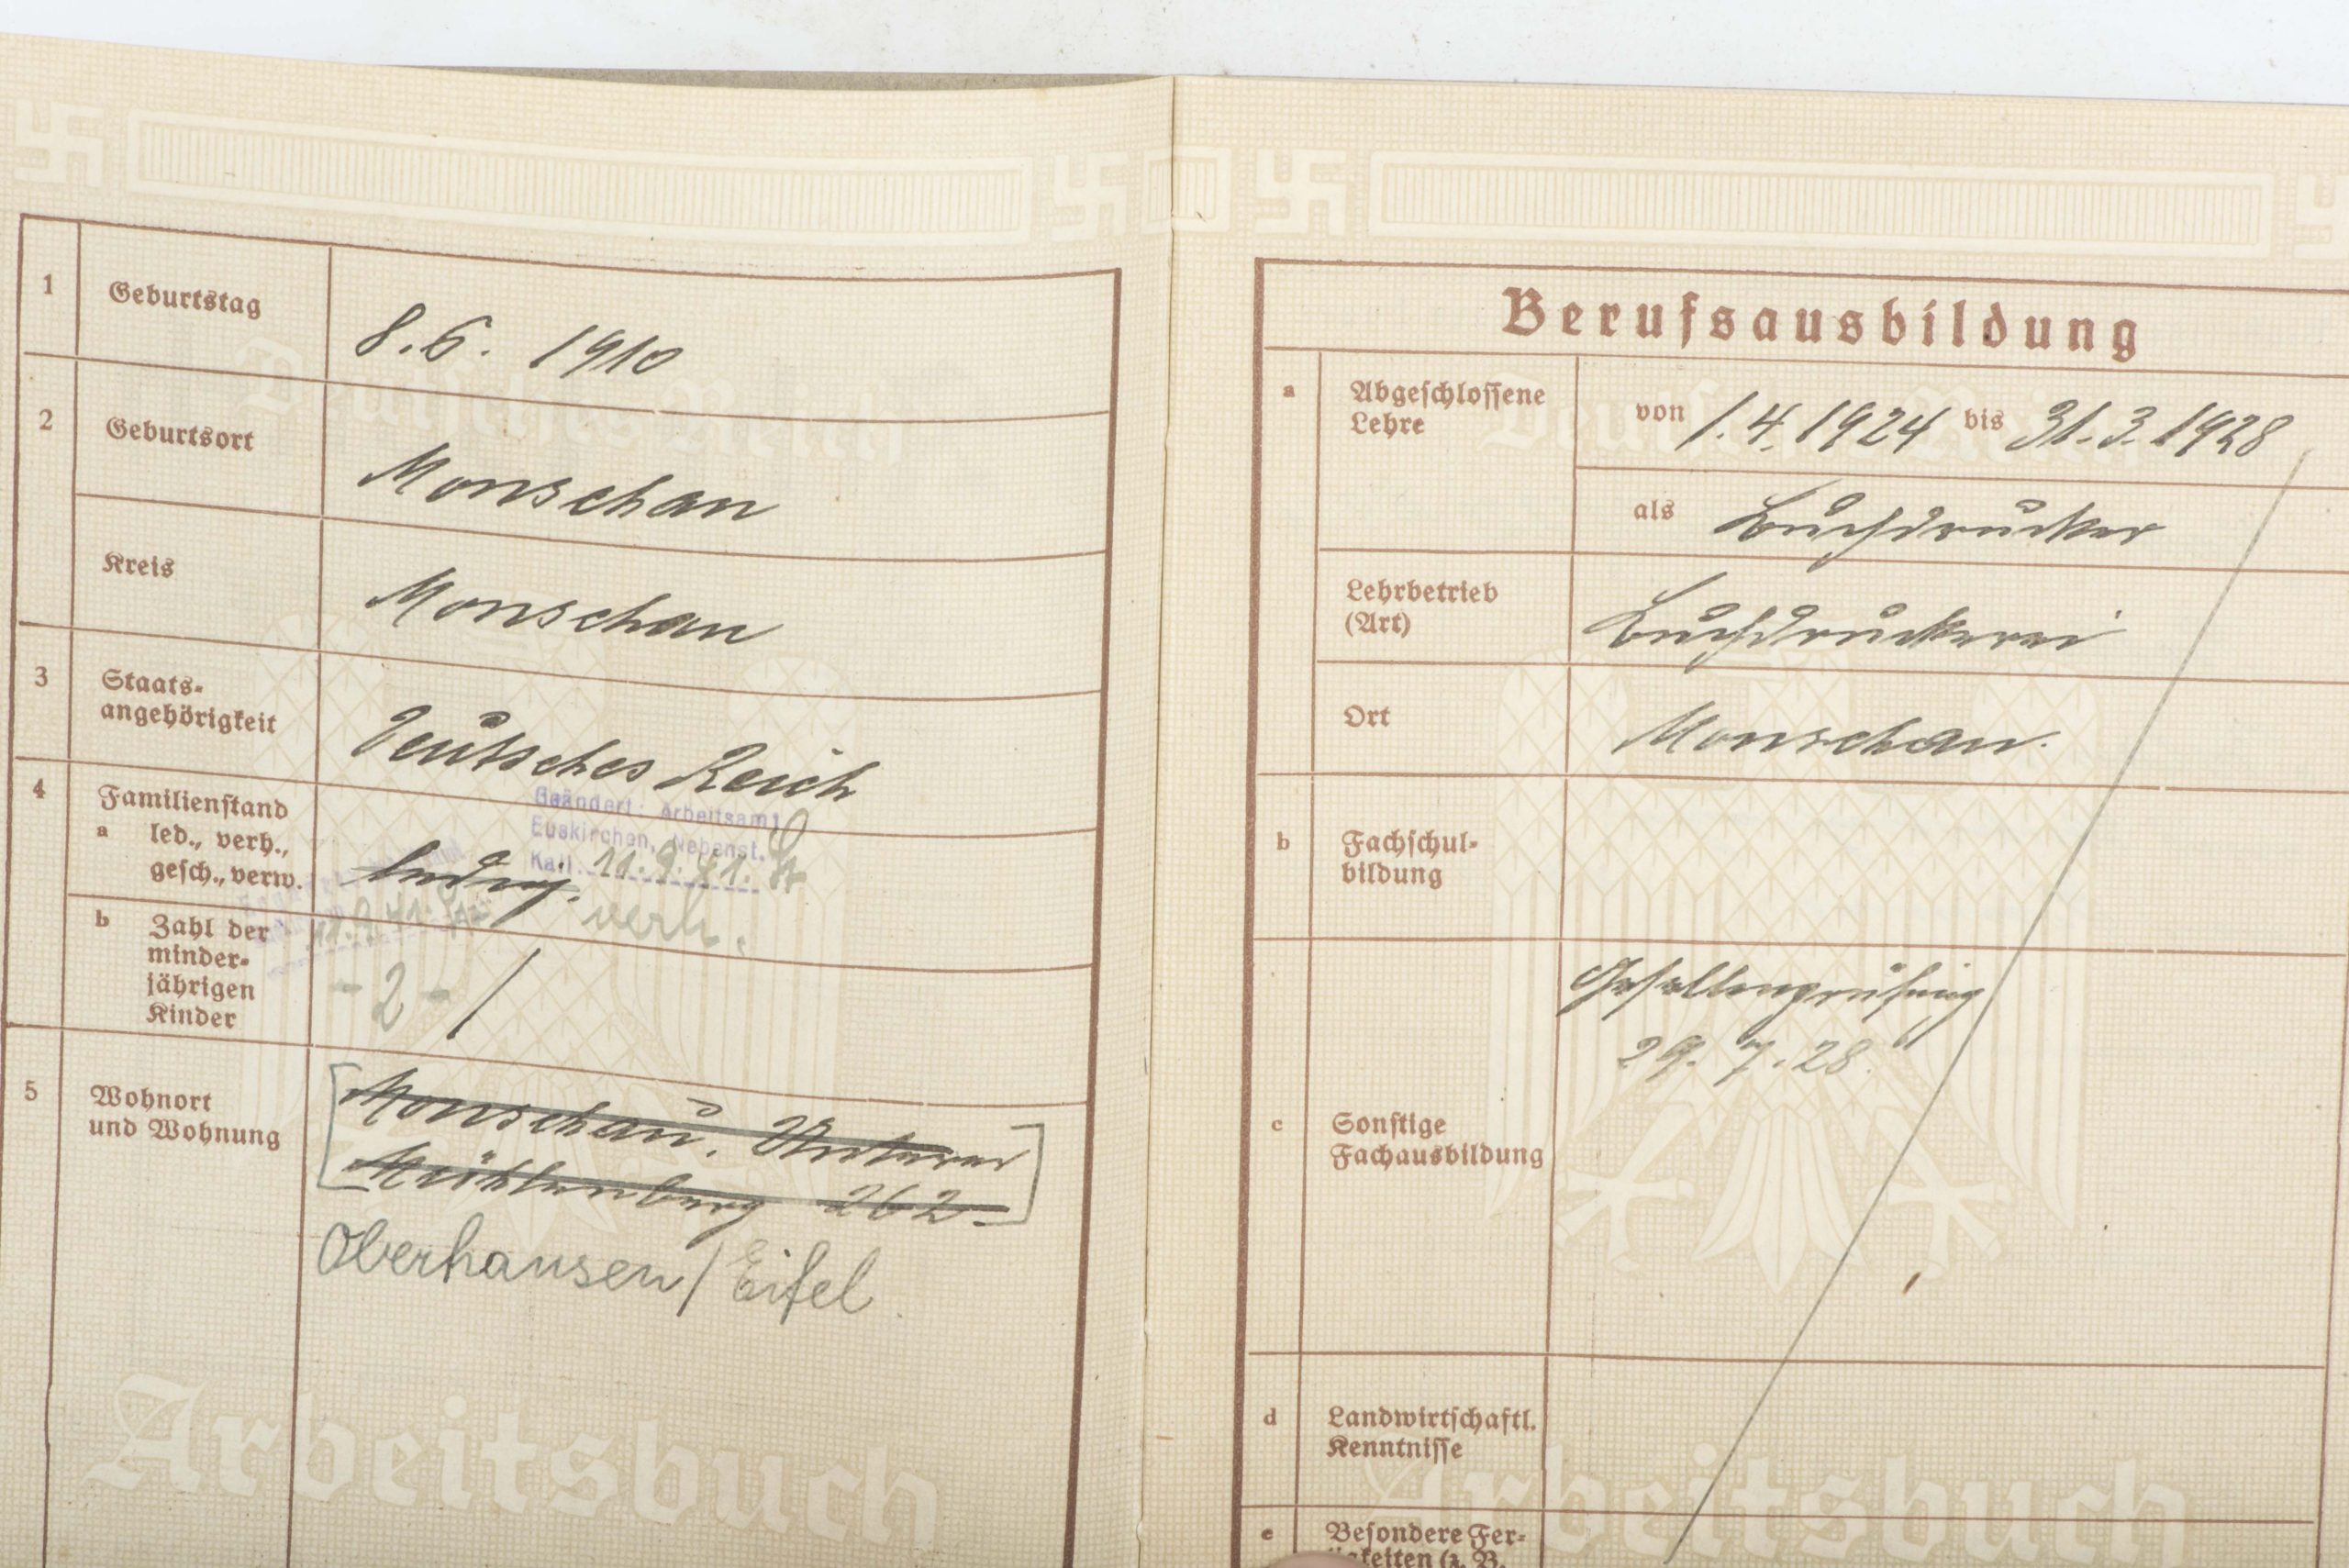 1 Geburtstag 8.6. 1910
2 Geburtsort Monschau
Kreis Monschau
3 Staats-
angehörigkeit Deutsches Reich
Geändert: Arbeitsamt
Euskirchen, Nebenst.
Kall 11.9.41.
4 Familienstand
a led., verh.,
gesch., verw. ledig. verh.
b Zahl der
minder-
jährigen
Kinder - 2 - /
5 Wohnort
und Wohnung
Monschau. Unterer
Mühlenberg 262
Oberhausen / Eifel
Arbeitsbuch
Berufsausbildung
a Abgeschlossene
Lehre
von 1.4.1924 bis 31.3.1928
als Buchdrucker
Lehrbetrieb
(Art) Buchdruckerei
Ort Monschau.
b Fachschul-
bildung
Gesellenprüfung
29.7.28
c Sonstige
Fachausbildung
d Landwirtschaftl.
Kenntnisse
Arbeitsbuch
e Besondere Fer-
tigkeiten (z. B.
Deutsches Reich
Deutsches Reich